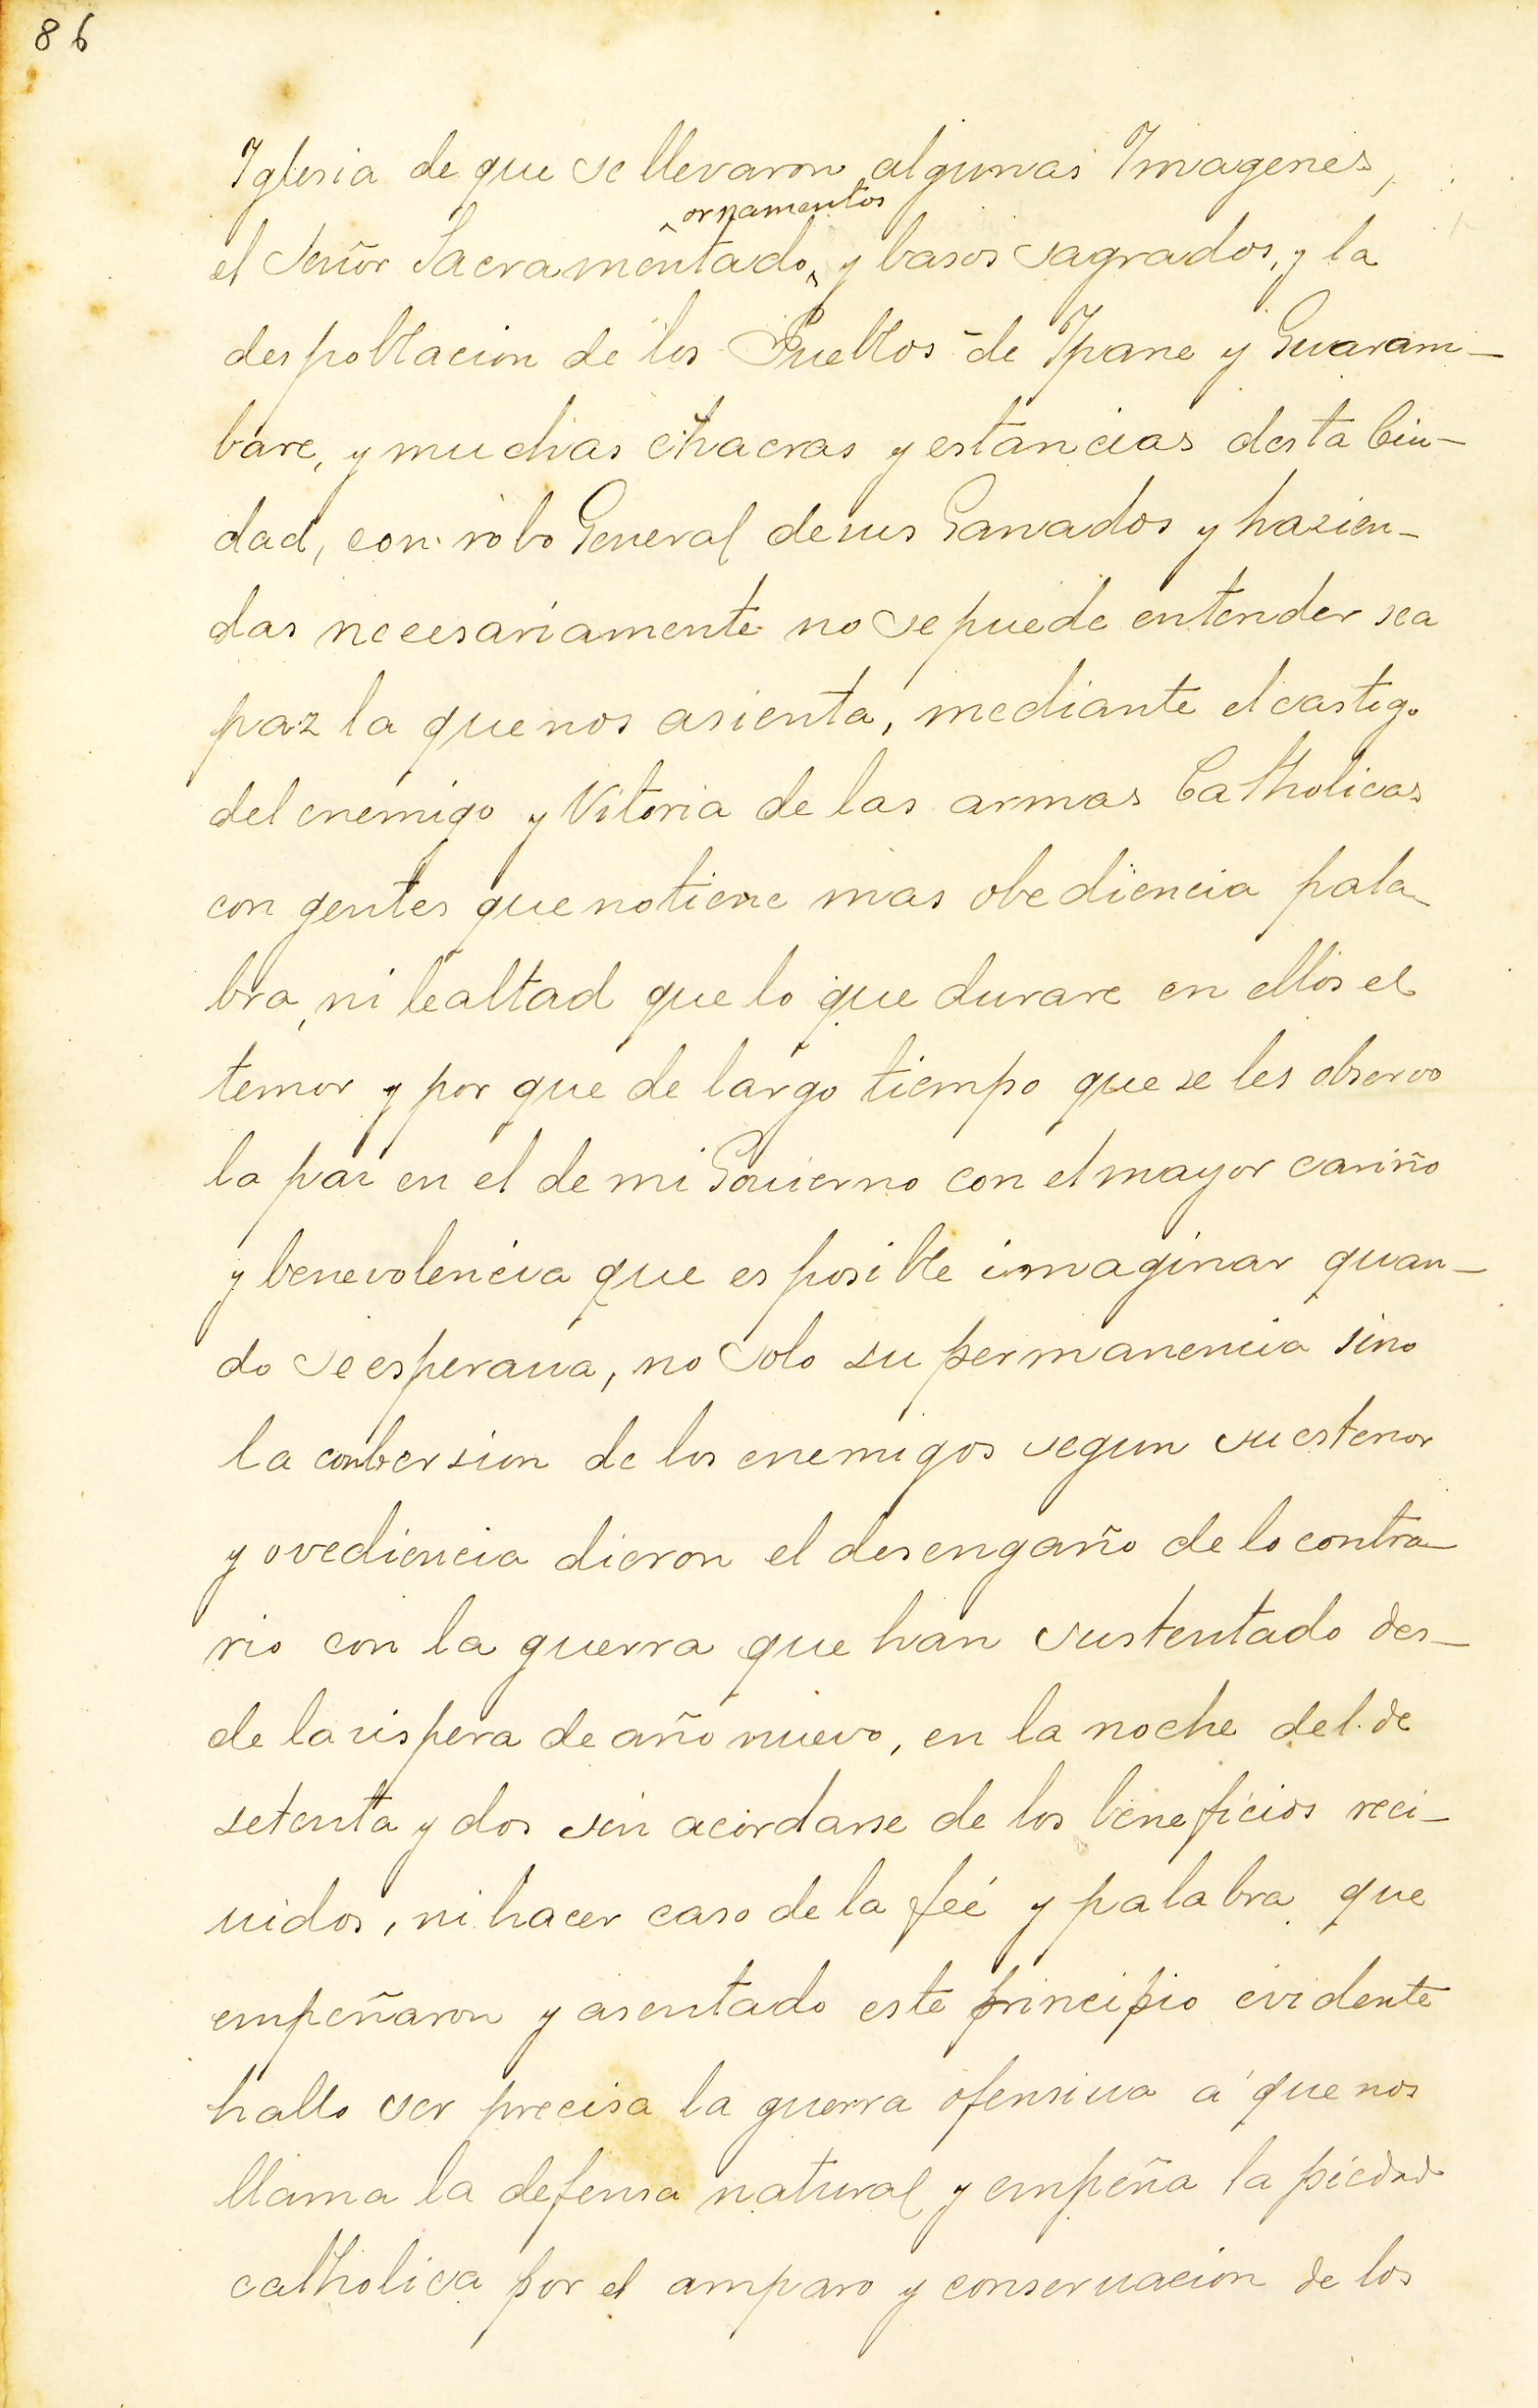 86
Iglesia de que se llevaron algunas Imagenes,
ornamentos
el Señor Sacramentado, y basos sagrados, y la
despoblacion de los Pueblos de Ypane y Guaram-
bare, y muchas chacras y estancias desta Ciu-
dad, con robo General de sus Ganados y hazien-
das necesariamente no se puede entender sea
paz la que nos asienta, mediante el castigo
del enemigo y Vitoria de las armas Catholicas
con gentes que no tiene mas obediencia pala-
bra, ni lealtad que lo que durare en ellos el
temor y por que de largo tiempo que se les observo
la paz en el de mi Govierno con el mayor cariño
y benevolencia que es posible imaginar quan-
do se esperaua, no solo su permanencia sino
la conbersion de los enemigos segun su estenor
y ovediencia dieron el desengaño de lo contra-
rio con la guerra que han sustentado des-
de la vispera de año nuevo, en la noche del de
setenta y dos sin acordarse de los beneficios reci-
uidos, ni hacer caso de la feé y palabra que
empeñaron y asentado este principio evidente
hallo ser precisa la guerra ofensiua á que nos
llama la defensa natural y empeña la piedad
catholica por el amparo y conseruacion de los